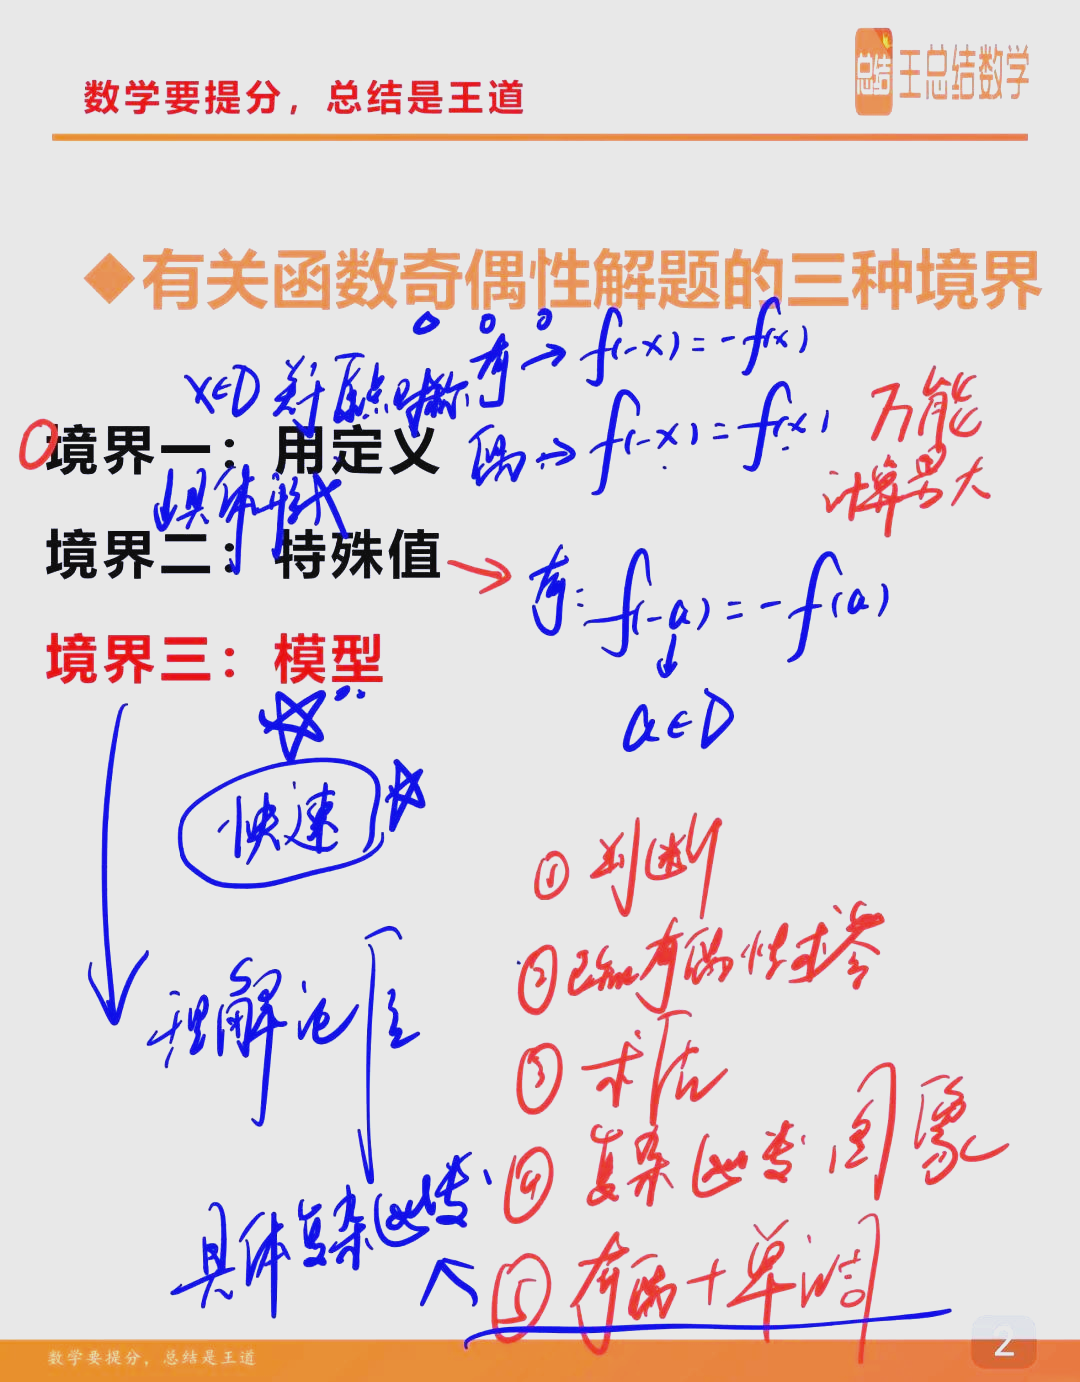 数学要提分，总结是王道
总结
王总结数学
◆有关函数奇偶性解题的三种境界
奇→f(-x)=-f(x)
x∈D 关于原点对称
境界一：用定义
偶→f(-x)=f(x)
万能
计算量大
具体形式
境界二：特殊值
奇:f(-a)=-f(a)
a∈D
境界三：模型
快速
①判断
②已知奇偶性求参
③求值
④复杂函数图象
⑤奇偶+单调
理解记住
具体复杂函数
数学要提分，总结是王道
2